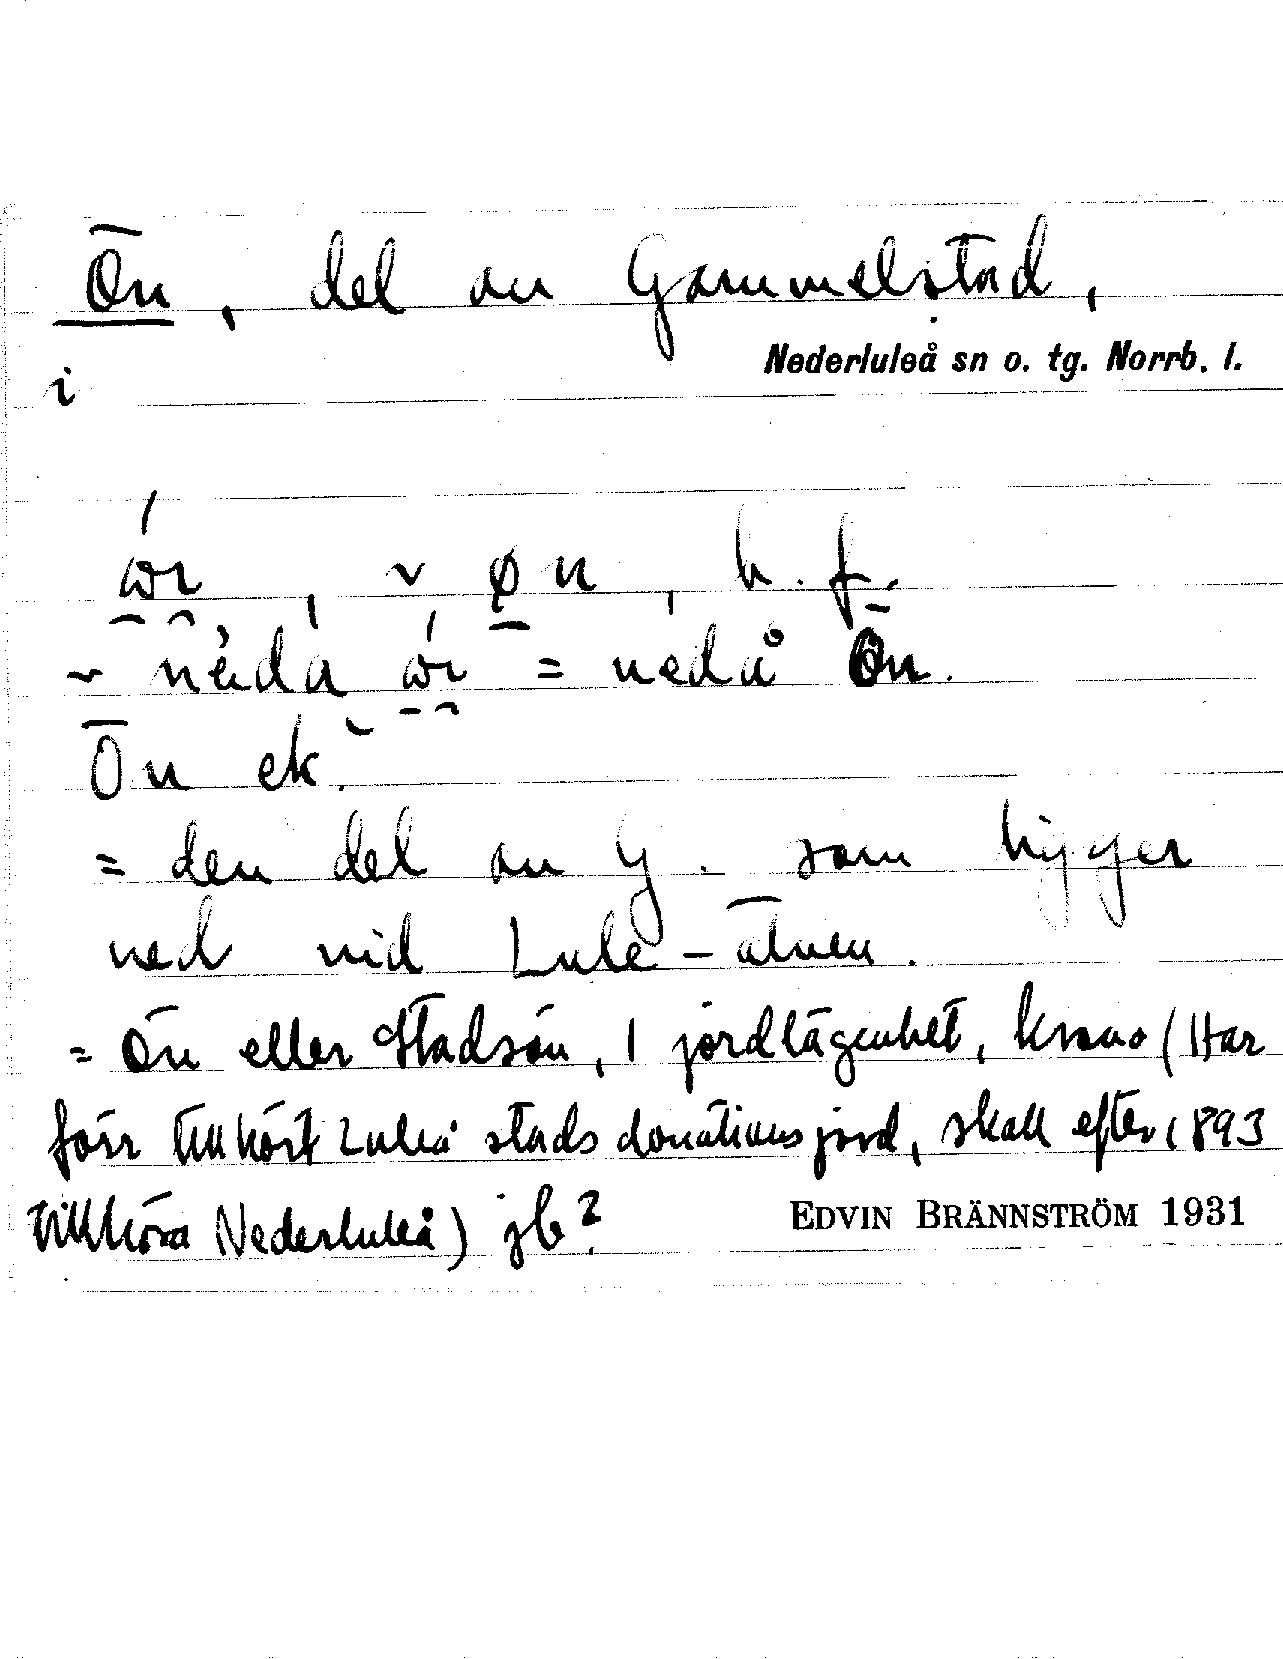 Ön, del av Gammelstad,
Nederluleå sn o. tg. Norrb. l.
i
~ øn, h. f.
~ = nedå Ön.
Ön ek.
= den del av G. som ligger
ned vid Lule-älven.
= Ön eller Stadsön, 1 jordlägenhet, krono (Har
förr tillhört Luleå stads donationsjord, skall efter 1893
tillhöra Nederluleå) jb 2
EDVIN BRÄNNSTRÖM 1931